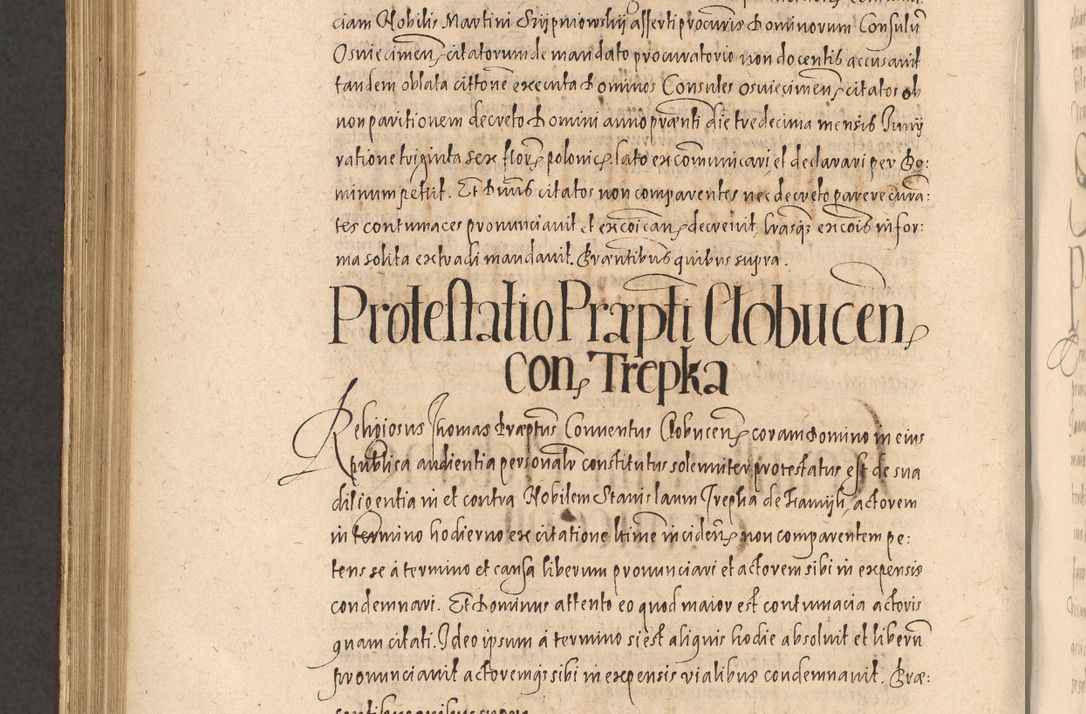 ciam Nobilis Martini Szijpniowskij asserti procuris Dominorum Consulũ
Osuiecimen̄ citatorum de mandato procuratorio non docentis accusavit
tandem oblata cittonẽ executa Dominos Consules osuiecimen̄ citatos ob
non paritionem decreto Domini anno prænti die tredecima mensis Junij
ratione triginta sex floren̄ polonic̄ lato excomunicari et declarari per Do:
minum petiit. Et Dnus citatos non comparentes nec decreto parere curã:
tes contumaces pronunciavit et excõican̄ decrevit, lrasq3 excõis in for:
ma solita extradi mandavit. Præntibus quibus supra.
Protestatio Præpti Clobucen̄
con̄ Trepka
Religiosus Thomas Præptus Conventus Clobucen̄ coram Domino in eius
publica audientia personalr constitutus solenniter protestatus est de sua
diligentia in et contra Nobilem Stanislaum Trepka de actorem
in termino hodierno ex citatione ltime inciden̄ non comparentem pe:
tens se à termino et causa liberum pronunciari et actorem sibi in expensis
condemnari. Et Dominus attento eo quod maior est contumacia actoris
quam citati. Ideo ipsum à termino si est aliquis hodie absolvit et liberũ
pronunciavit actoremq3 sibi in expensis vialibus condemnavit. Præ:
sentibus quibus supra